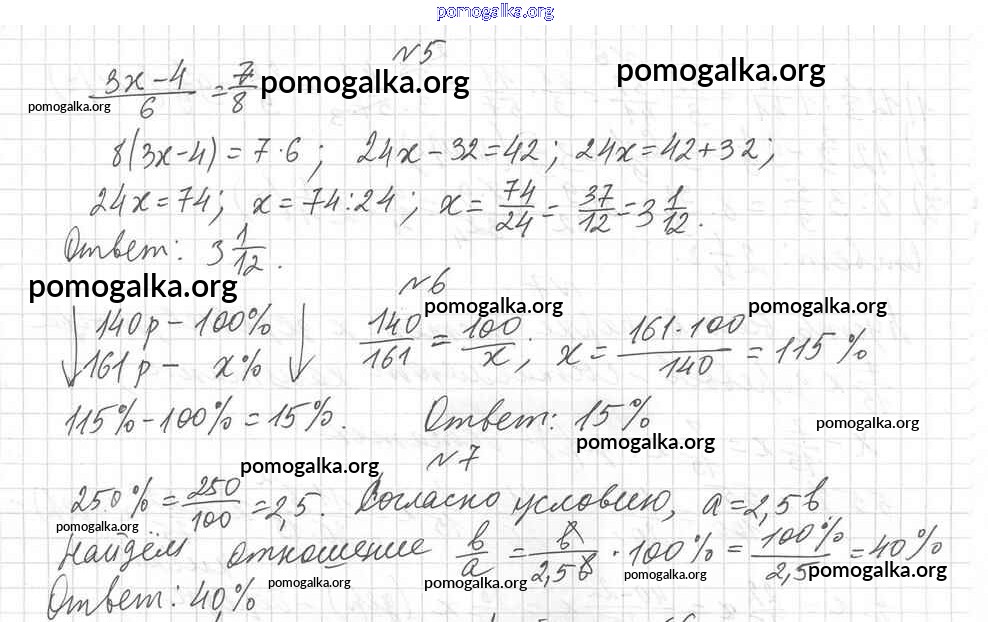 pomogalka.org
№5
(3x-4)/6 = 7/8 pomogalka.org pomogalka.org
pomogalka.org
8(3x-4)=7·6; 24x-32=42; 24x=42+32;
24x=74; x=74:24; x=74/24=37/12=3 1/12.
Ответ: 3 1/12.
pomogalka.org №6
pomogalka.org pomogalka.org
↓ 140р – 100% ↓ 140/161 = 100/x; x = (161·100)/140 = 115%
161р – x%
115%-100%=15%. Ответ: 15%
pomogalka.org pomogalka.org
pomogalka.org №7
250% = 250/100 = 2,5. Согласно условию, a=2,5b.
pomogalka.org
Найдём отношение b/a = b/2,5b · 100% = 100%/2,5 = 40%
pomogalka.org pomogalka.org pomogalka.org pomogalka.org
Ответ: 40%